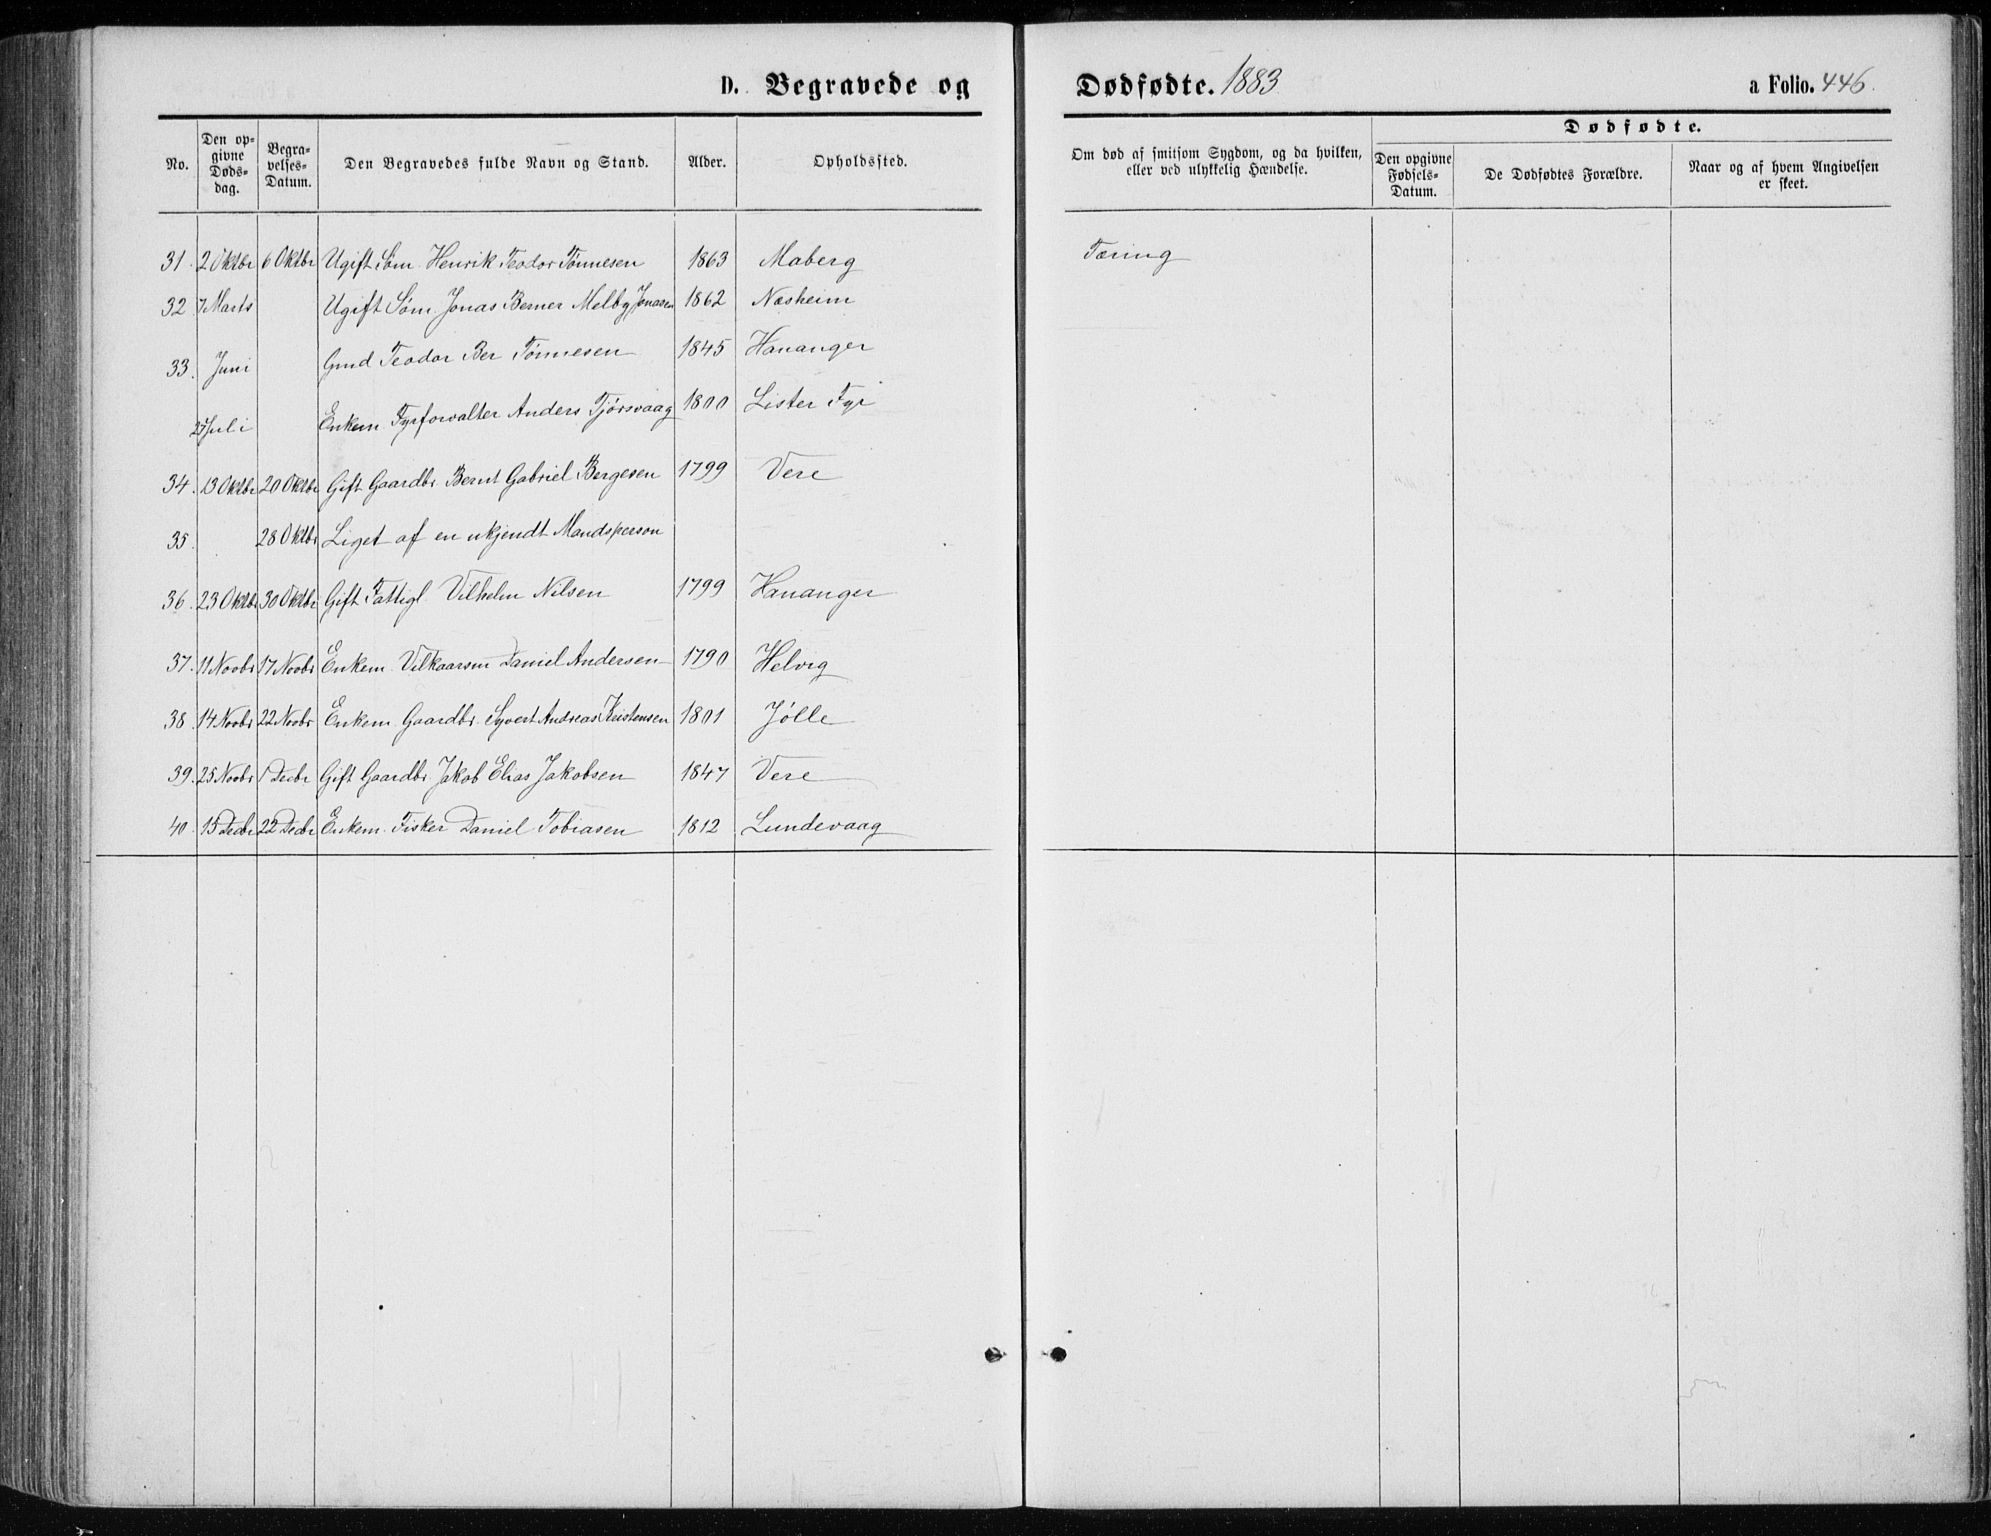 D. Begravede og Dødfødte. 1883 a Folio. 446.
No. Den opgivne Dødsdag. Begravelses-Datum. Den Begravedes fulde Navn og Stand. Alder. Opholdssted. Om død af smitsom Sygdom, og da hvilken, eller ved ulykkelig Hændelse. Dødfødte. Den opgivne Fødsels-Datum. De Dødfødtes Forældre. Naar og af hvem Angivelsen er skeet.
31. 2 Oktbr 6 Oktbr Ugift Søm. Henrik Teodor Tönnesen 1863 Maberg Tæring
32 7 Marts Ugift Søm. Jonas Berner Melby Jonasen 1862 Næsheim
33. Juni Gmd Teodor Ber Tönnesen 1845 Hananger
27 Juli Enkem Fyrforvalter Anders Tjörsvaag 1800 Lister Fyr
34. 13 Oktbr 20 Oktbr Gift Gaardbr Bernt Gabriel Bergesen 1799 Vere
35. 28 Oktbr Liget af en ukjendt Mandsperson
36. 23 Oktbr 30 Oktbr Gift Fattigl. Vilhelm Nilsen 1799 Hananger
37. 11 Novbr 17 Novbr Enkem. Vilkaarsm Daniel Andersen 1790 Helvig
38. 14 Novbr 22 Novbr Enkem. Gaardbr. Syvert Andreas Kristensen 1801 Jölle
39. 25 Novbr 1 Decbr Gift Gaardbr Jakob Elias Jakobsen 1847 Vere
40. 15 Decbr 22 Decbr Enkem. Fisker Daniel Tobiasen 1812 Lundevaag